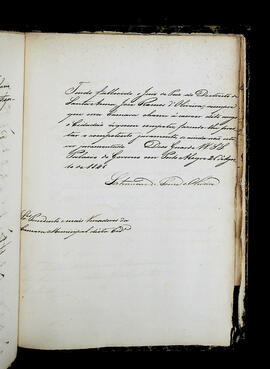 Tendo fallecido o Juiz de Paz do Districto de
Santa Anna José Ramos d'Oliveira, cumpre
que essa Camara chame á exercer dito cargo
o Cidadão a quem competir, fazendo-lhe pres-
tar o competente juramento, se ainda não esti-
ver juramentado. Deos Guarde VV. SS.
Palacio do Governo em Porto Alegre 21 de
to de 1848
Snr.s Presidente e mais Vereadores da
Camara Municipal desta Cid.e